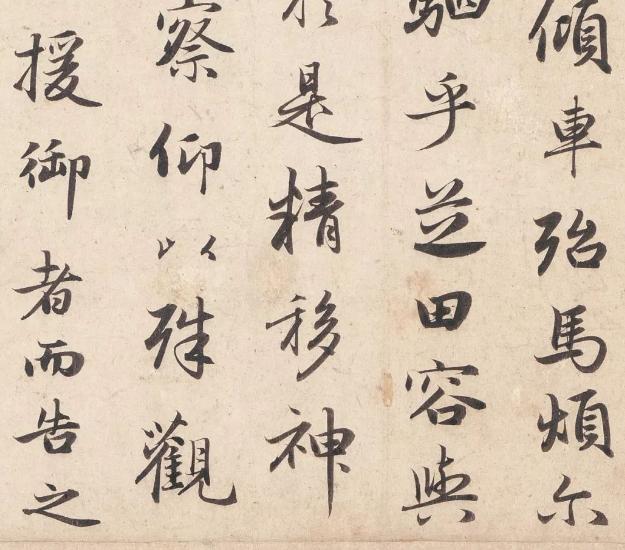 傾車殆馬煩尓
駟乎芝田容與
於是精移神
察仰以殊觀
援御者而告之